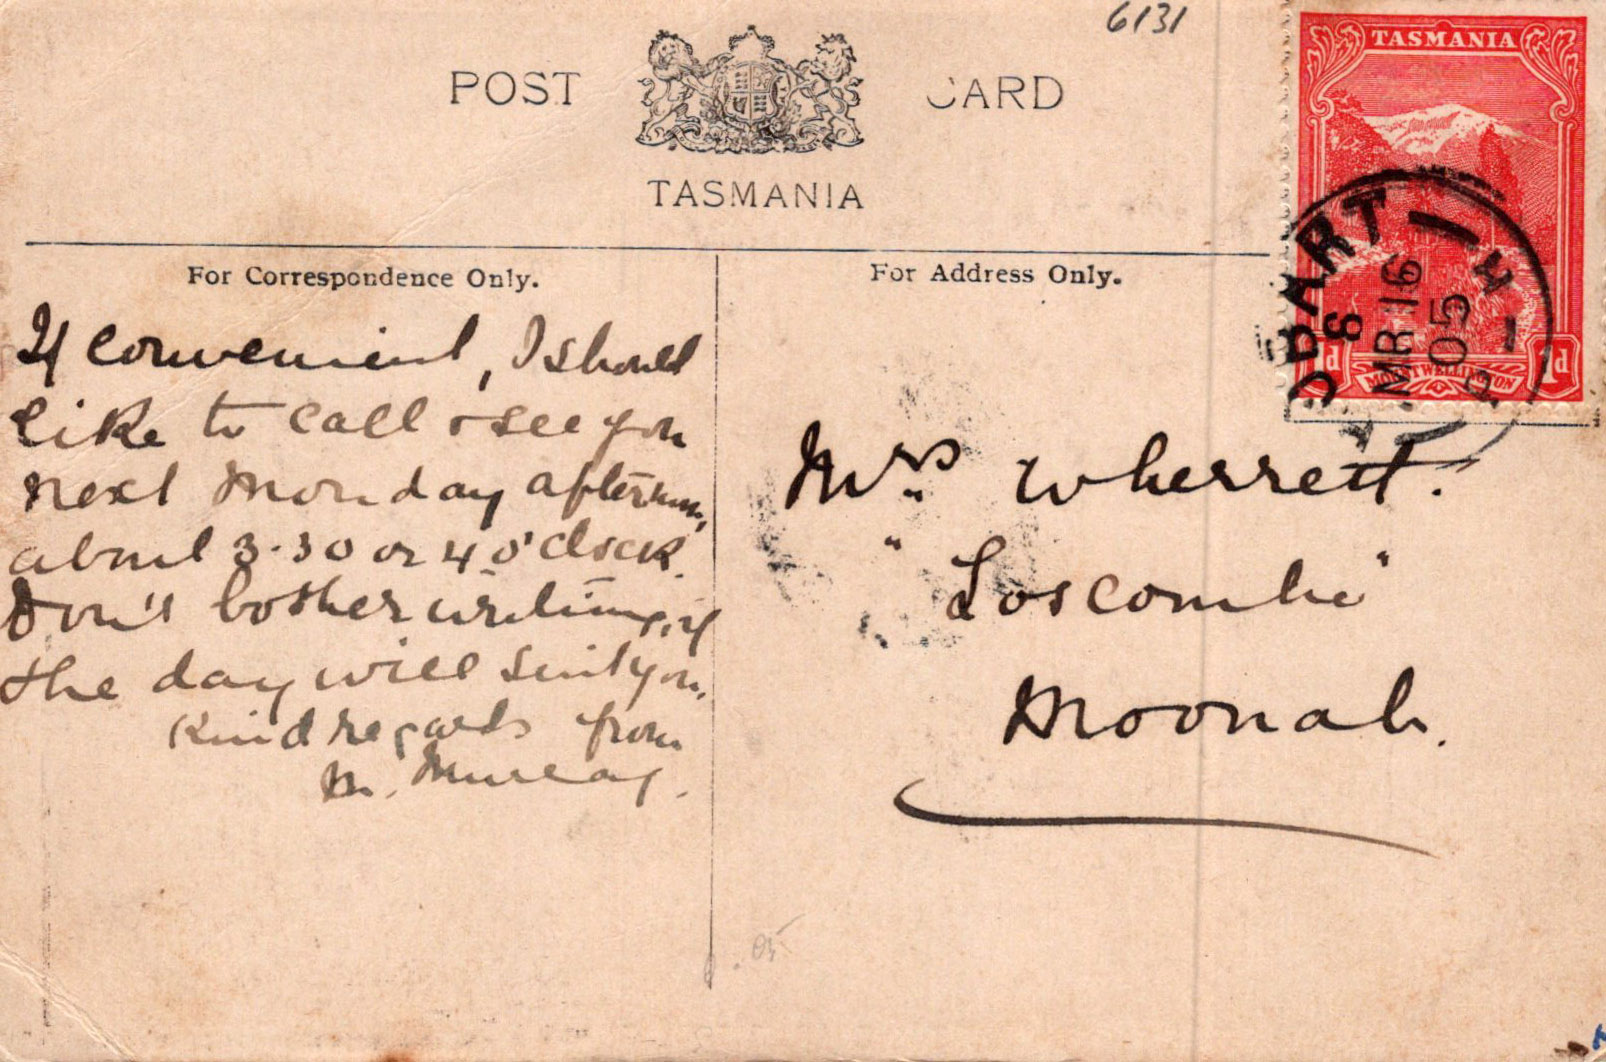 6131
POST CARD
TASMANIA
TASMANIA
HOBART
6
MR 16
05
1d 1d
MOUNT WELLINGTON
For Correspondence Only.
If convenient, I should
like to call & see you
next Monday afternoon,
about 3.30 or 4 o'clock.
Don't bother writing, if
the day will suit you.
Kind regards from
M. Murray.
For Address Only.
Mrs Wherrett.
"Loscombe"
Moonah.
05